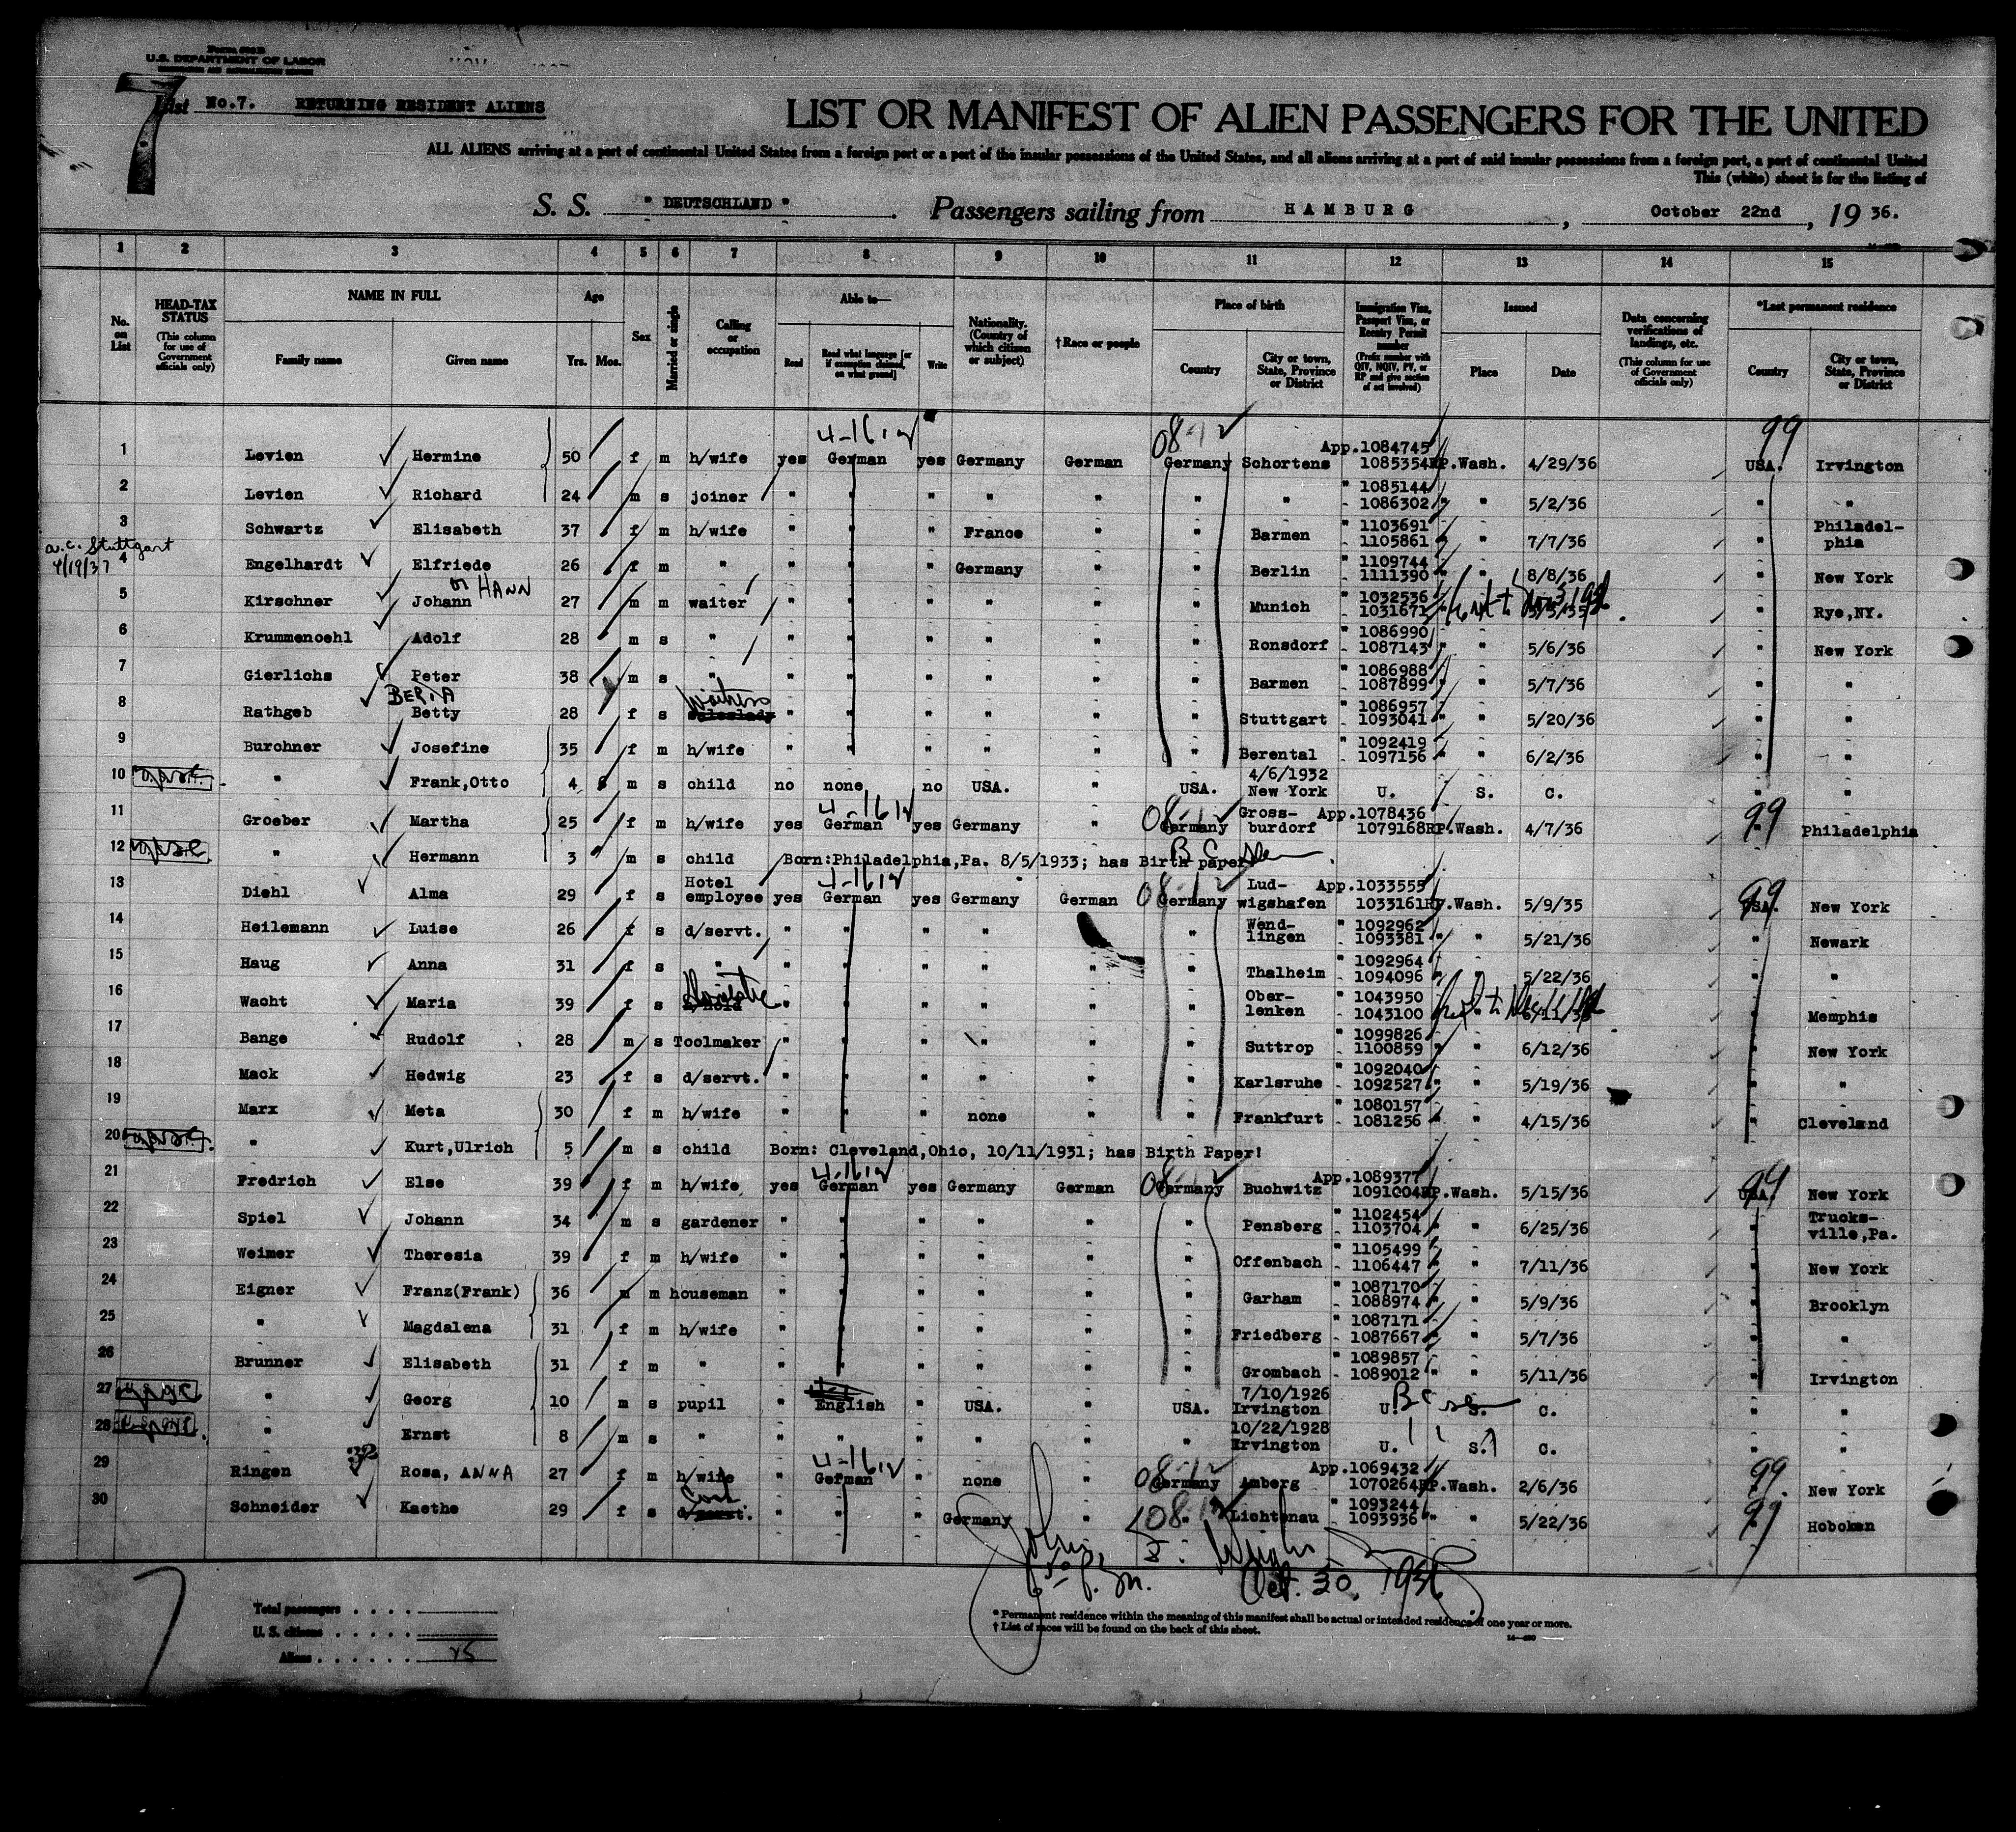 U.S. DEPARTMENT OF LABOR
7
List No.7. RETURNING RESIDENT ALIENS
LIST OR MANIFEST OF ALIEN PASSENGERS FOR THE UNITED
ALL ALIENS arriving at a port of continental United States from a foreign port or a port of the insular possessions of the United States, and all aliens arriving at a port of said insular possessions from a foreign port, a port of continental United
This (white) sheet is for the listing of
S. S. " DEUTSCHLAND " Passengers sailing from HAMBURG, October 22nd, 19 36.
1 2 3 4 5 6 7 8 9 10 11 12 13 14 15
No. on List
HEAD-TAX STATUS (This column for use of Government officials only)
NAME IN FULL Family name Given name
Age Yrs. Mos.
Sex
Married or single
Calling or occupation
Able to— Read Read what language [or if exemption claimed, on what ground] Write
Nationality. (Country of which citizen or subject)
†Race or people
Place of birth Country City or town, State, Province or District
Immigration Visa, Passport Visa, or Reentry Permit number (Prefix number with QIV, NQIV, PV, or RP and give section of act involved)
Issued Place Date
Data concerning verifications of landings, etc. (This column for use of Government officials only)
*Last permanent residence Country City or town, State, Province or District
4-16 08 99
1 Levien Hermine 50 f m h/wife yes German yes Germany German Germany Schortens App.1084745 1085354 RP.Wash. 4/29/36 USA. Irvington
2 Levien Richard 24 m s joiner " " " " " " " " 1085144 1086302 " " 5/2/36 " "
3 Schwartz Elisabeth 37 f m h/wife " " " France " " Barmen " 1103691 1105861 " " 7/7/36 " Philadel-phia
a.c. Stuttgart 4/19/37
4 Engelhardt Elfriede 26 f m " " " " Germany " " Berlin " 1109744 1111390 " " 8/8/36 " New York
or HANN
5 Kirschner Johann 27 m m waiter " " " " " " Munich " 1032536 1031671 " Rye,NY.
6 Krummenoehl Adolf 28 m s " " " " " " " Ronsdorf " 1086990 1087143 " " 5/6/36 " New York
7 Gierlichs Peter 38 m s " " " " " " " Barmen " 1086988 1087899 " " 5/7/36 " "
BERTA Waitress
8 Rathgeb Betty 28 f s saleslady " " " " " " Stuttgart " 1086957 1093041 " " 5/20/36 " "
9 Burchner Josefine 35 f m h/wife " " " " " " Berental " 1092419 1097156 " " 6/2/36 " "
10 " Frank,Otto 4 m s child no none no USA. " USA. 4/6/1932 New York U. S. C. " "
4-16 08 99
11 Groeber Martha 25 f m h/wife yes German yes Germany " Germany Gross-burdorf App.1078436 1079168 RP.Wash. 4/7/36 " Philadelphia
12 " Hermann 3 m s child Born:Philadelphia,Pa. 8/5/1933; has Birth paper
4-16 08 99
13 Diehl Alma 29 f s Hotel employee yes German yes Germany German Germany Lud-wigshafen App.1033555 1033161 RP.Wash. 5/9/35 USA. New York
14 Heilemann Luise 26 f s d/servt. " " " " " Wend-lingen " 1092962 1093381 " " 5/21/36 " Newark
15 Haug Anna 31 f s " " " " " " " Thalheim " 1092964 1094096 " " 5/22/36 " "
Domestic
16 Wacht Maria 39 f s " " " " " " Ober-lenken " 1043950 1043100 " Memphis
17 Bange Rudolf 28 m s Toolmaker " " " " " " Suttrop " 1099826 1100859 " " 6/12/36 " New York
18 Mack Hedwig 23 f s d/servt. " " " " " " Karlsruhe " 1092040 1092527 " " 5/19/36 " "
19 Marx Meta 30 f m h/wife " " " none " " Frankfurt " 1080157 1081256 " " 4/15/36 " Cleveland
20 " Kurt,Ulrich 5 m s child Born: Cleveland,Ohio, 10/11/1931; has Birth Paper!
4-16 08 99
21 Fredrich Else 39 f m h/wife yes German yes Germany German Germany Buchwitz App.1089377 1091004 RP.Wash. 5/15/36 USA. New York
22 Spiel Johann 34 m s gardener " " " " " " Pensberg " 1102454 1103704 " " 6/25/36 " Trucks-ville,Pa.
23 Weimer Theresia 39 f m h/wife " " " " " " Offenbach " 1105499 1106447 " " 7/11/36 " New York
24 Eigner Franz(Frank) 36 m m houseman " " " " " " Garham " 1087170 1088974 " " 5/9/36 " Brooklyn
25 " Magdalena 31 f m h/wife " " " " " " Friedberg " 1087171 1087667 " " 5/7/36 " "
26 Brunner Elisabeth 31 f m " " " " " " " Grombach " 1089857 1089012 " " 5/11/36 " Irvington
27 " Georg 10 m s pupil " English " USA. " USA. 7/10/1926 Irvington U. S. C. " "
28 " Ernst 8 m s " " " " " " " 10/22/1928 Irvington U. S. C. " "
32 4-16 08 99
29 Ringen Rosa, ANNA 27 f m h/wife " German " none " Germany Amberg App.1069432 1070264 RP.Wash. 2/6/36 " New York
Cook
30 Schneider Kaethe 29 f s d/servt. " " " Germany " " Lichtenau " 1093244 1093936 " " 5/22/36 " Hoboken
Oct. 30, 1936
Total passengers
U. S. citizens
Aliens 25
* Permanent residence within the meaning of this manifest shall be actual or intended residence of one year or more.
† List of races will be found on the back of this sheet.